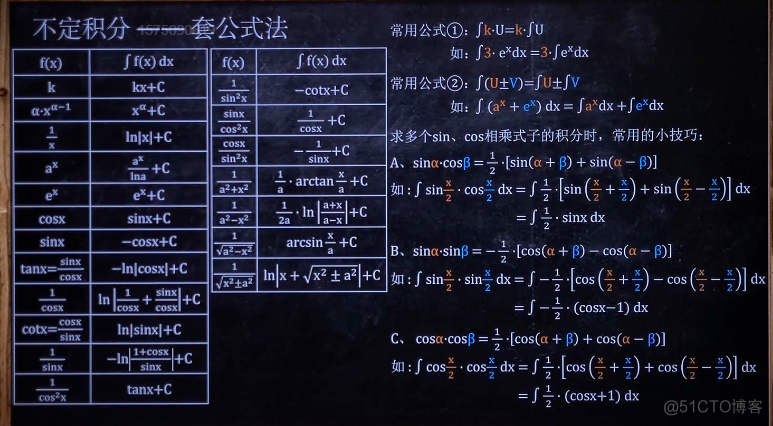 不定积分 套公式法
f(x) ∫ f(x) dx
k kx+C
α·x^(α−1) x^α+C
1/x ln|x|+C
a^x a^x/lna +C
e^x e^x+C
cosx sinx+C
sinx −cosx+C
tanx=sinx/cosx −ln|cosx|+C
1/cosx ln|1/cosx + sinx/cosx|+C
cotx=cosx/sinx ln|sinx|+C
1/sinx −ln|(1+cosx)/sinx|+C
1/cos²x tanx+C
f(x) ∫ f(x) dx
1/sin²x −cotx+C
sinx/cos²x 1/cosx +C
cosx/sin²x −1/sinx +C
1/(a²+x²) 1/a·arctan x/a +C
1/(a²−x²) 1/2a·ln|(a+x)/(a−x)|+C
1/√(a²−x²) arcsin x/a +C
1/√(x²±a²) ln|x + √(x² ± a²)|+C
常用公式①：∫k·U=k·∫U
如：∫3· e^x dx =3·∫e^x dx
常用公式②：∫(U±V)=∫U±∫V
如：∫ (a^x + e^x) dx = ∫a^x dx +∫e^x dx
求多个sin、cos相乘式子的积分时，常用的小技巧：
A、sinα·cosβ = 1/2 ·[sin(α + β) + sin(α − β)]
如：∫ sin x/2 · cos x/2 dx = ∫ 1/2 ·[sin (x/2 + x/2) + sin (x/2 − x/2)] dx
= ∫ 1/2 · sinx dx
B、sinα·sinβ = − 1/2 ·[cos(α + β) − cos(α − β)]
如：∫ sin x/2 · sin x/2 dx = ∫ − 1/2 ·[cos (x/2 + x/2) − cos (x/2 − x/2)] dx
= ∫ − 1/2 · (cosx−1) dx
C、 cosα·cosβ = 1/2 ·[cos(α + β) + cos(α − β)]
如：∫ cos x/2 · cos x/2 dx = ∫ 1/2 ·[cos (x/2 + x/2) + cos (x/2 − x/2)] dx
= ∫ 1/2 · (cosx+1) dx
@51CTO博客